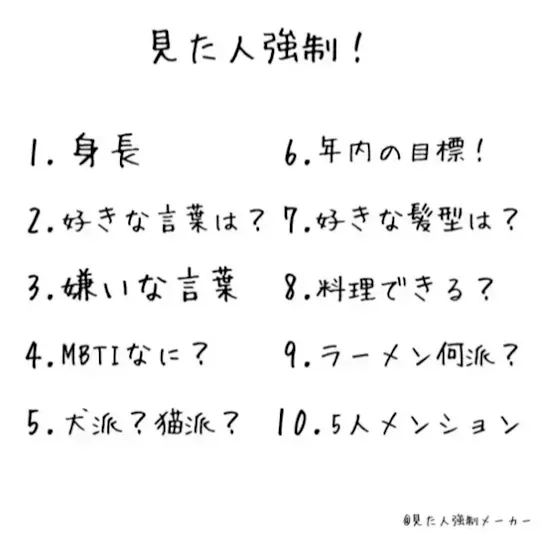 見た人強制!
1. 身長
2.好きな言葉は?
3.嫌いな言葉
4.MBTIなに?
5.犬派?猫派?
6.年内の目標!
7.好きな髪型は?
8.料理できる?
9.ラーメン何派?
10.5人メンション
@見た人強制メーカー